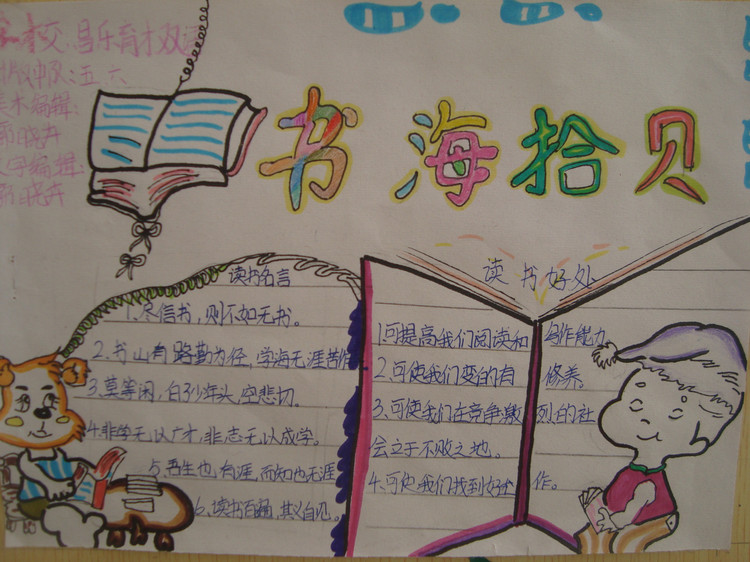 校:昌乐育才双语
版中队:五.六
美术编辑:
晓卉
文字编辑:
晓卉
书海拾贝
读书名言
1.尽信书,则不如无书。
2.书山有路勤为径,学海无涯苦作
3.莫等闲,白了少年头,空悲切。
4.非学无以广才,非志无以成学。
5.吾生也有涯,而知也无涯
6.读书百遍,其义自见。
读书好处
1.可提高我们阅读和写作能力
2.可使我们变的有修养.
3.可使我们在竞争激烈的社
会立于不败之地。
4.可使我们找到好工作。